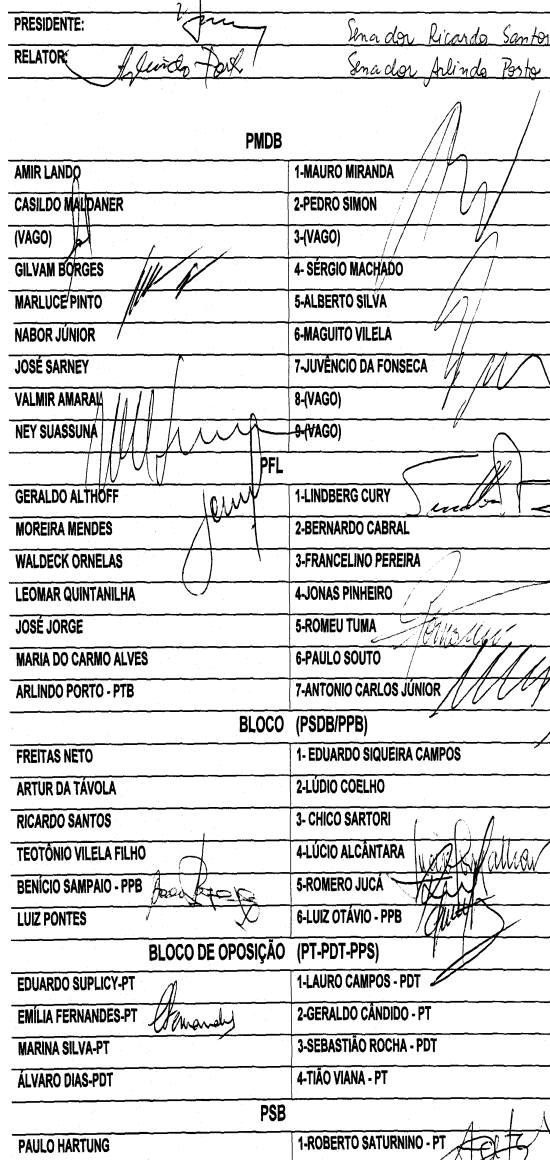 PRESIDENTE: Senador Ricardo Santos
RELATOR: Arlindo Porto Senador Arlindo Porto
PMDB
AMIR LANDO 1-MAURO MIRANDA
CASILDO MALDANER 2-PEDRO SIMON
(VAGO) 3-(VAGO)
GILVAM BORGES 4- SÉRGIO MACHADO
MARLUCE PINTO 5-ALBERTO SILVA
NABOR JÚNIOR 6-MAGUITO VILELA
JOSÉ SARNEY 7-JUVÊNCIO DA FONSECA
VALMIR AMARAL 8-(VAGO)
NEY SUASSUNA 9-(VAGO)
PFL
GERALDO ALTHOFF 1-LINDBERG CURY
MOREIRA MENDES 2-BERNARDO CABRAL
WALDECK ORNELAS 3-FRANCELINO PEREIRA
LEOMAR QUINTANILHA 4-JONAS PINHEIRO
JOSÉ JORGE 5-ROMEU TUMA
MARIA DO CARMO ALVES 6-PAULO SOUTO
ARLINDO PORTO - PTB 7-ANTONIO CARLOS JÚNIOR
BLOCO (PSDB/PPB)
FREITAS NETO 1- EDUARDO SIQUEIRA CAMPOS
ARTUR DA TÁVOLA 2-LÚDIO COELHO
RICARDO SANTOS 3- CHICO SARTORI
TEOTÔNIO VILELA FILHO 4-LÚCIO ALCÂNTARA
BENÍCIO SAMPAIO - PPB 5-ROMERO JUCÁ
LUIZ PONTES 6-LUIZ OTÁVIO - PPB
BLOCO DE OPOSIÇÃO (PT-PDT-PPS)
EDUARDO SUPLICY-PT 1-LAURO CAMPOS - PDT
EMÍLIA FERNANDES-PT 2-GERALDO CÂNDIDO - PT
MARINA SILVA-PT 3-SEBASTIÃO ROCHA - PDT
ÁLVARO DIAS-PDT 4-TIÃO VIANA - PT
PSB
PAULO HARTUNG 1-ROBERTO SATURNINO - PT